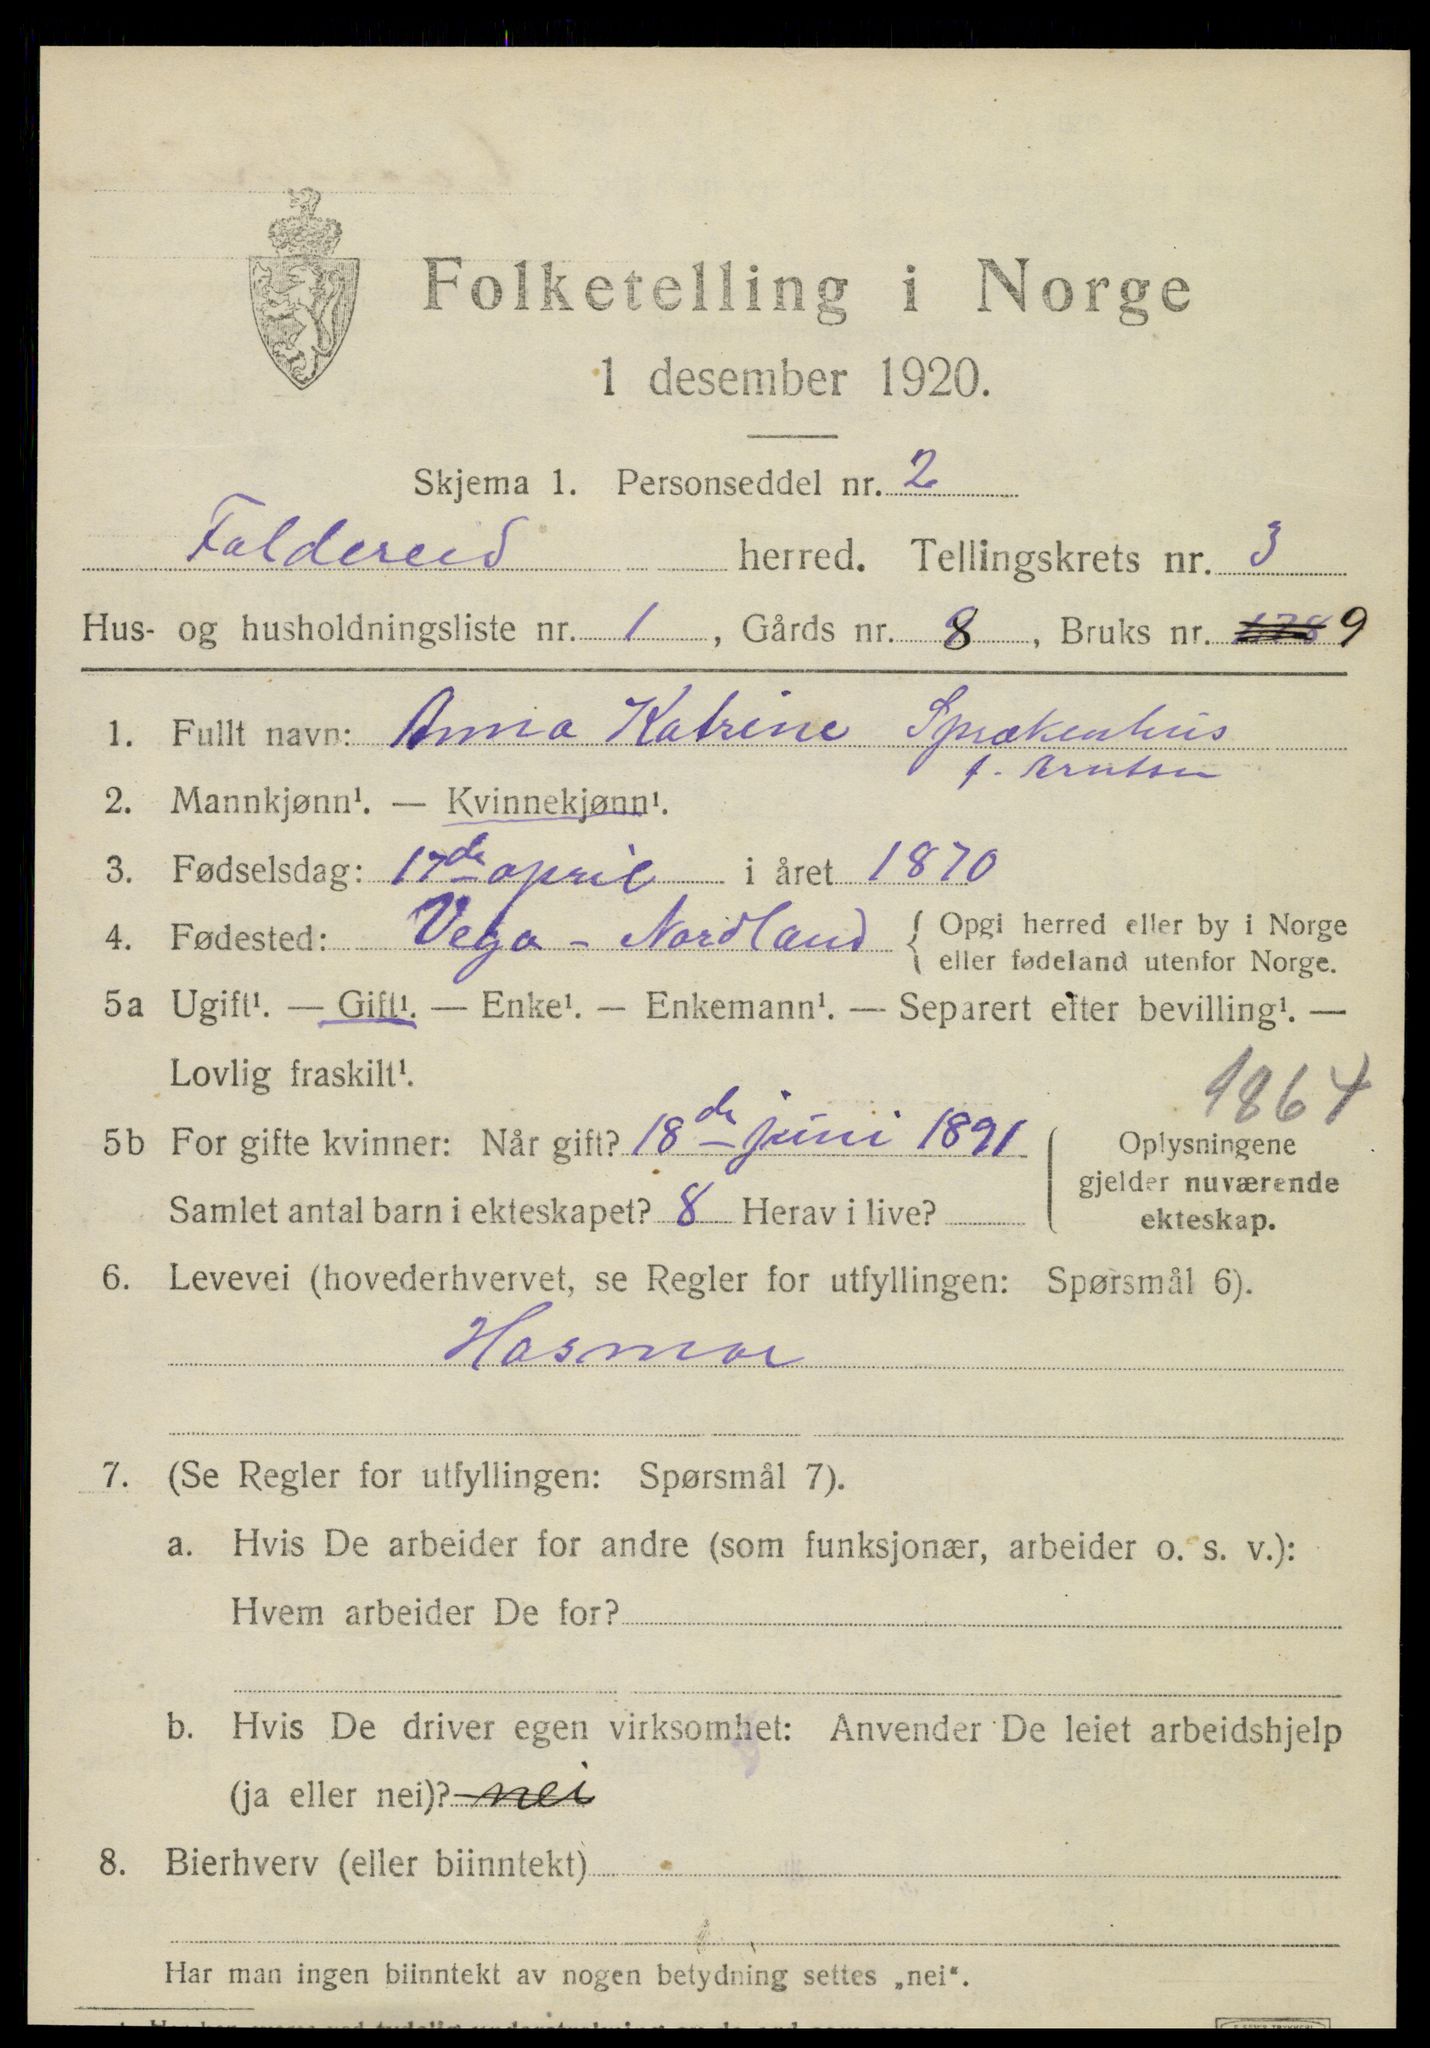 Folketelling i Norge
1 desember 1920.
Skjema 1. Personseddel nr. 2
Foldereid herred. Tellingskrets nr. 3
Hus- og husholdningsliste nr. 1, Gårds nr. 8, Bruks nr. 178 9
1. Fullt navn: Anna Katrine Sprækenhus
f. Arntsen
2. Mannkjønn¹. — Kvinnekjønn¹.
3. Fødselsdag: 17de april i året 1870
4. Fødested: Vega - Nordland { Opgi herred eller by i Norge
eller fødeland utenfor Norge.
5a Ugift¹. — Gift¹. — Enke¹. — Enkemann¹. — Separert efter bevilling¹. —
Lovlig fraskilt¹.
1864
5b For gifte kvinner: Når gift? 18de juni 1891 Oplysningene
gjelder nuværende
Samlet antal barn i ekteskapet? 8 Herav i live? ekteskap.
6. Levevei (hovederhvervet, se Regler for utfyllingen: Spørsmål 6).
Hosmor
7. (Se Regler for utfyllingen: Spørsmål 7).
a. Hvis De arbeider for andre (som funksjonær, arbeider o. s. v.):
Hvem arbeider De for?
b. Hvis De driver egen virksomhet: Anvender De leiet arbeidshjelp
(ja eller nei)? nei
8. Bierhverv (eller biinntekt)
Har man ingen biinntekt av nogen betydning settes „nei“.